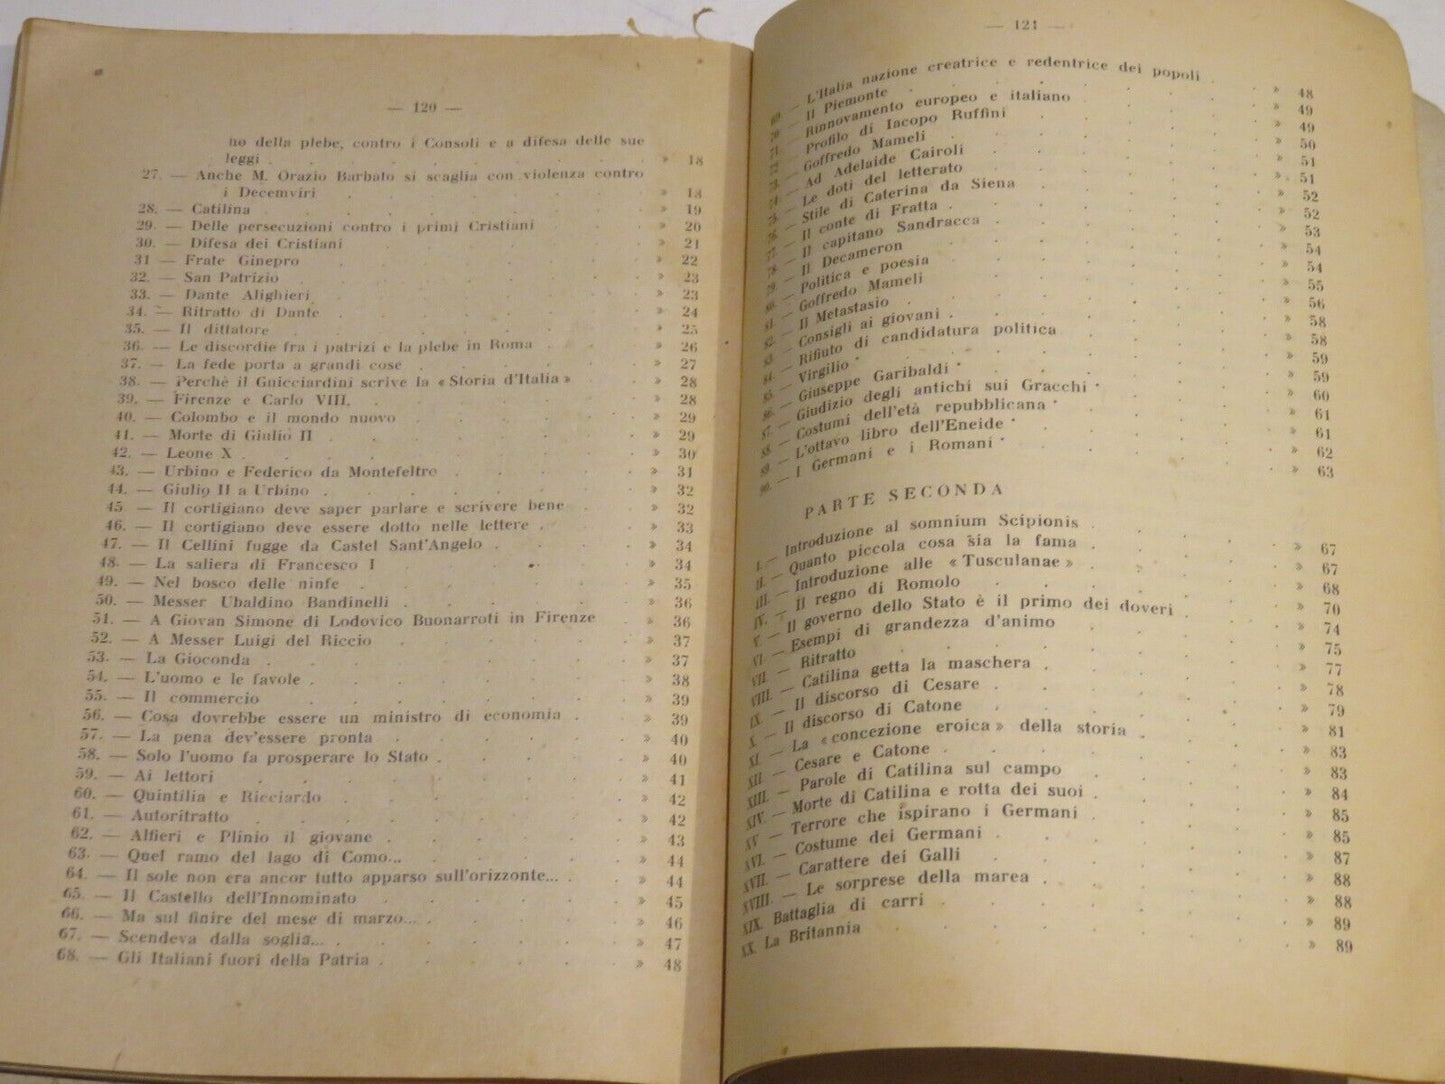 — 120 —
no della plebe, contro i Consoli e a difesa delle sue
leggi . . . . . . . » 18
27. — Anche M. Orazio Barbato si scaglia con violenza contro
i Decemviri . . . . . . » 18
28. — Catilina . . . . . . . » 19
29. — Delle persecuzioni contro i primi Cristiani . . » 20
30. — Difesa dei Cristiani . . . . . » 21
31 — Frate Ginepro . . . . . . » 22
32. — San Patrizio . . . . . . » 23
33. — Dante Alighieri . . . . . . » 23
34. — Ritratto di Dante . . . . . . » 24
35. — Il dittatore . . . . . . » 25
36. — Le discordie fra i patrizi e la plebe in Roma . . » 26
37. — La fede porta a grandi cose . . . . » 27
38. — Perchè il Guicciardini scrive la « Storia d'Italia » . » 28
39. — Firenze e Carlo VIII. . . . . . » 28
40. — Colombo e il mondo nuovo . . . . » 29
41. — Morte di Giulio II . . . . . . » 29
42. — Leone X . . . . . . . » 30
43. — Urbino e Federico da Montefeltro . . . » 31
44. — Giulio II a Urbino . . . . . » 32
45 — Il cortigiano deve saper parlare e scrivere bene . » 32
46. — Il cortigiano deve essere dotto nelle lettere . . » 33
47. — Il Cellini fugge da Castel Sant'Angelo . . . » 34
48. — La saliera di Francesco I . . . . » 34
49. — Nel bosco delle ninfe . . . . . » 35
50. — Messer Ubaldino Bandinelli . . . . » 36
51. — A Giovan Simone di Lodovico Buonarroti in Firenze » 36
52. — A Messer Luigi del Riccio . . . . » 37
53. — La Gioconda . . . . . . » 37
54. — L'uomo e le favole . . . . . . » 38
55. — Il commercio . . . . . . » 39
56. — Cosa dovrebbe essere un ministro di economia . » 39
57. — La pena dev'essere pronta . . . . » 40
58. — Solo l'uomo fa prosperare lo Stato . . . » 40
59. — Ai lettori . . . . . . » 41
60. — Quintilia e Ricciardo . . . . . » 42
61. — Autoritratto . . . . . . » 42
62. — Alfieri e Plinio il giovane . . . . » 43
63. — Quel ramo del lago di Como... . . . . » 44
64. — Il sole non era ancor tutto apparso sull'orizzonte... . » 44
65. — Il Castello dell'Innominato . . . . » 45
66. — Ma sul finire del mese di marzo... . . . » 46
67. — Scendeva dalla soglia... . . . . . » 47
68. — Gli Italiani fuori della Patria . . . . » 48
— 121 —
69. — L'Italia nazione creatrice e redentrice dei popoli . » 48
70. — Il Piemonte . . . . . . » 49
71. — Rinnovamento europeo e italiano . . . » 49
72. — Profilo di Iacopo Ruffini . . . . » 50
73. — Goffredo Mameli . . . . . » 51
74. — Ad Adelaide Cairoli . . . . . » 51
75. — Le doti del letterato . . . . . » 52
76. — Stile di Caterina da Siena . . . . » 52
77. — Il conte di Fratta . . . . . » 53
78. — Il capitano Sandracca . . . . » 54
79. — Il Decameron . . . . . » 54
80. — Politica e poesia . . . . . » 55
81. — Goffredo Mameli . . . . . » 56
82. — Il Metastasio . . . . . » 58
83. — Consigli ai giovani . . . . . » 58
84. — Rifiuto di candidatura politica . . . » 59
85. — Virgilio . . . . . . » 59
86. — Giuseppe Garibaldi . . . . . » 60
87. — Giudizio degli antichi sui Gracchi . . . » 61
88. — Costumi dell'età repubblicana . . . » 61
89. — L'ottavo libro dell'Eneide . . . . » 62
90. — I Germani e i Romani . . . . » 63
PARTE SECONDA
I. — Introduzione al somnium Scipionis . . . » 67
II. — Quanto piccola cosa sia la fama . . . » 67
III. — Introduzione alle « Tusculanae » . . . » 68
IV. — Il regno di Romolo . . . . » 70
V. — Il governo dello Stato è il primo dei doveri . » 74
VI. — Esempi di grandezza d'animo . . . » 75
VII. — Ritratto . . . . . . » 77
VIII. — Catilina getta la maschera . . . . » 78
IX. — Il discorso di Cesare . . . . » 79
X. — Il discorso di Catone . . . . » 81
XI. — La « concezione eroica » della storia . . » 83
XII. — Cesare e Catone . . . . . » 83
XIII. — Parole di Catilina sul campo . . . » 84
XIV. — Morte di Catilina e rotta dei suoi . . . » 85
XV — Terrore che ispirano i Germani . . . » 85
XVI. — Costume dei Germani . . . . » 87
XVII. — Carattere dei Galli . . . . » 88
XVIII. — Le sorprese della marea . . . . » 88
XIX. Battaglia di carri . . . . . » 89
XX. La Britannia . . . . . » 89